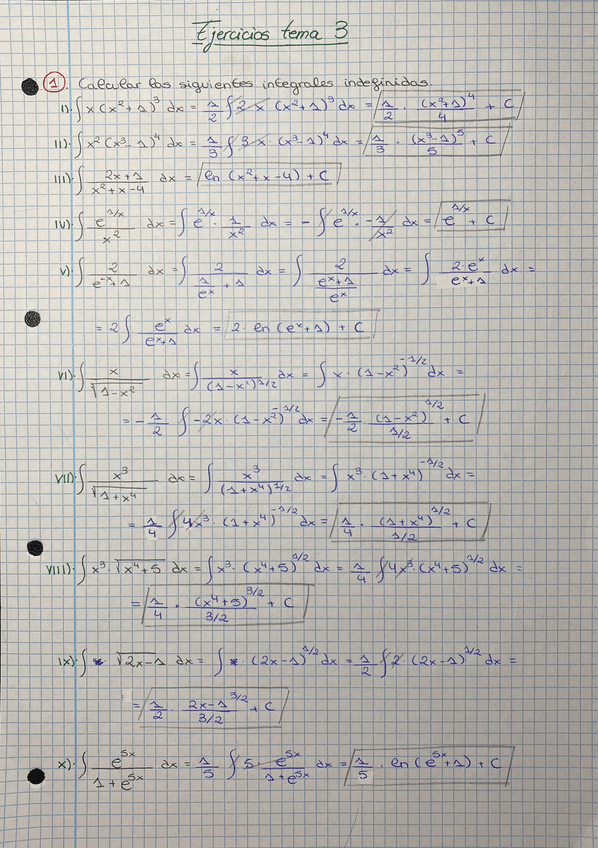 Ejercicios tema 3
1. Calcular las siguientes integrales indefinidas.
I) ∫ x(x²+1)³ dx = 1/2 ∫ 2x (x²+1)³ dx = 1/2 · (x²+1)⁴/4 + C
II) ∫ x²(x³-1)⁴ dx = 1/3 ∫ 3x · (x³-1)⁴ dx = 1/3 · (x³-1)⁵/5 + C
III) ∫ (2x+1)/(x²+x-4) dx = ln (x²+x-4) + C
IV) ∫ e^(1/x)/x² dx = ∫ e^(1/x) · 1/x² dx = - ∫ e^(1/x) · -1/x² dx = e^(1/x) + C
V) ∫ 2/(e^(-x)+1) dx = ∫ 2/(1/e^x + 1) dx = ∫ 2/((e^x+1)/e^x) dx = ∫ 2·e^x/(e^x+1) dx =
= 2 ∫ e^x/(e^x+1) dx = 2 · ln (e^x+1) + C
VI) ∫ x/√(1-x²) dx = ∫ x/(1-x²)^(1/2) dx = ∫ x · (1-x²)^(-1/2) dx =
= -1/2 ∫ -2x · (1-x²)^(-1/2) dx = -1/2 · (1-x²)^(1/2)/(1/2) + C
VII) ∫ x³/√(1+x⁴) dx = ∫ x³/(1+x⁴)^(1/2) dx = ∫ x³ · (1+x⁴)^(-1/2) dx =
= 1/4 ∫ 4x³ · (1+x⁴)^(-1/2) dx = 1/4 · (1+x⁴)^(1/2)/(1/2) + C
VIII) ∫ x³ · √(x⁴+5) dx = ∫ x³ · (x⁴+5)^(1/2) dx = 1/4 ∫ 4x³ · (x⁴+5)^(1/2) dx =
= 1/4 · (x⁴+5)^(3/2)/(3/2) + C
IX) ∫ √(2x-1) dx = ∫ · (2x-1)^(1/2) dx = 1/2 ∫ 2 · (2x-1)^(1/2) dx =
= 1/2 · 2x-1^(3/2)/(3/2) + C
X) ∫ e^(5x)/(1+e^(5x)) dx = 1/5 ∫ 5 · e^(5x)/(1+e^(5x)) dx = 1/5 · ln (e^(5x)+1) + C